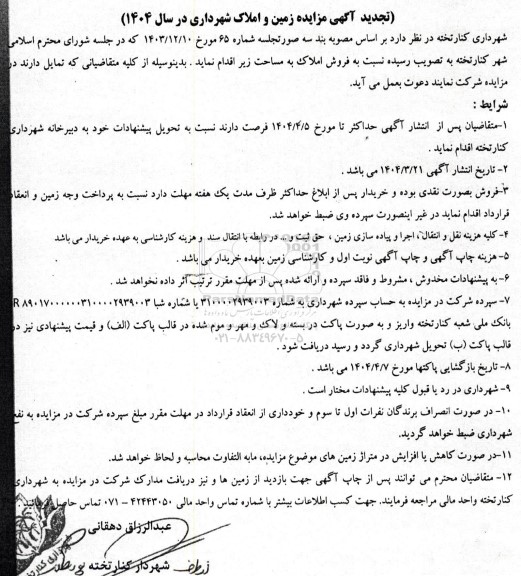 (تجدید آگهی مزایده زمین و املاک شهرداری در سال ۱۴۰۴)
شهرداری کنارتخته در نظر دارد بر اساس مصوبه بند سه صورتجلسه شماره ۶۵ مورخ ۱۴۰۳/۱۲/۱۰ که در جلسه شورای محترم اسلامی
شهر کنارتخته به تصویب رسیده نسبت به فروش املاک به مساحت زیر اقدام نماید . بدینوسیله از کلیه متقاضیانی که تمایل دارند در
مزایده شرکت نمایند دعوت بعمل می آید.
شرایط :
۱-متقاضیان پس از انتشار آگهی حداکثر تا مورخ ۱۴۰۴/۴/۵ فرصت دارند نسبت به تحویل پیشنهادات خود به دبیرخانه شهرداری
کنارتخته اقدام نماید .
۲- تاریخ انتشار آگهی ۱۴۰۴/۳/۲۱ می باشد .
۳-فروش بصورت نقدی بوده و خریدار پس از ابلاغ حداکثر ظرف مدت یک هفته مهلت دارد نسبت به پرداخت وجه زمین و انعقاد
قرارداد اقدام نماید در غیر اینصورت سپرده وی ضبط خواهد شد.
۴- کلیه هزینه نقل و انتقال، اجرا و پیاده سازی زمین ، حق ثبت و.. در رابطه با انتقال سند و هزینه کارشناسی به عهده خریدار می باشد
۵- هزینه چاپ آگهی و چاپ آگهی نوبت اول و کارشناسی زمین بعهده خریدار می باشد .
۶- به پیشنهادات مخدوش ، مشروط و فاقد سپرده و ارائه شده پس از مهلت مقرر ترتیب اثر داده نخواهد شد .
۷- سپرده شرکت در مزایده به حساب سپرده شهرداری به شماره ۳۱۰۰۰۰۲۹۳۹۰۰۳ با شماره شبا
بانک ملی شعبه کنارتخته واریز و به صورت پاکت در بسته و لاک و مهر و موم شده در قالب پاکت (الف) و قیمت پیشنهادی نیز در
قالب پاکت (ب) تحویل شهرداری گردد و رسید دریافت شود .
۰۲۱-۸۸۳۴۹۶۷۰-۵
۸- تاریخ بازگشایی پاکتها مورخ ۱۴۰۴/۴/۷ می باشد .
۹- شهرداری در رد یا قبول کلیه پیشنهادات مختار است .
۱۰- در صورت انصراف برندگان نفرات اول تا سوم و خودداری از انعقاد قرارداد در مهلت مقرر مبلغ سپرده شرکت در مزایده به نفع
شهرداری ضبط خواهد گردید.
۱۱-در صورت کاهش یا افزایش در متراژ زمین های موضوع مزایده، مابه التفاوت محاسبه و لحاظ خواهد شد.
۱۲- متقاضیان محترم می توانند پس از چاپ آگهی جهت بازدید از زمین ها و نیز دریافت مدارک شرکت در مزایده به شهرداری
کنارتخته واحد مالی مراجعه فرمایند. جهت کسب اطلاعات بیشتر با شماره تماس واحد مالی ۴۲۴۴۳۰۵۰ - ۰۷۱ تماس حاصل
عبدالرزاق دهقانی
شهردار کنارتخته